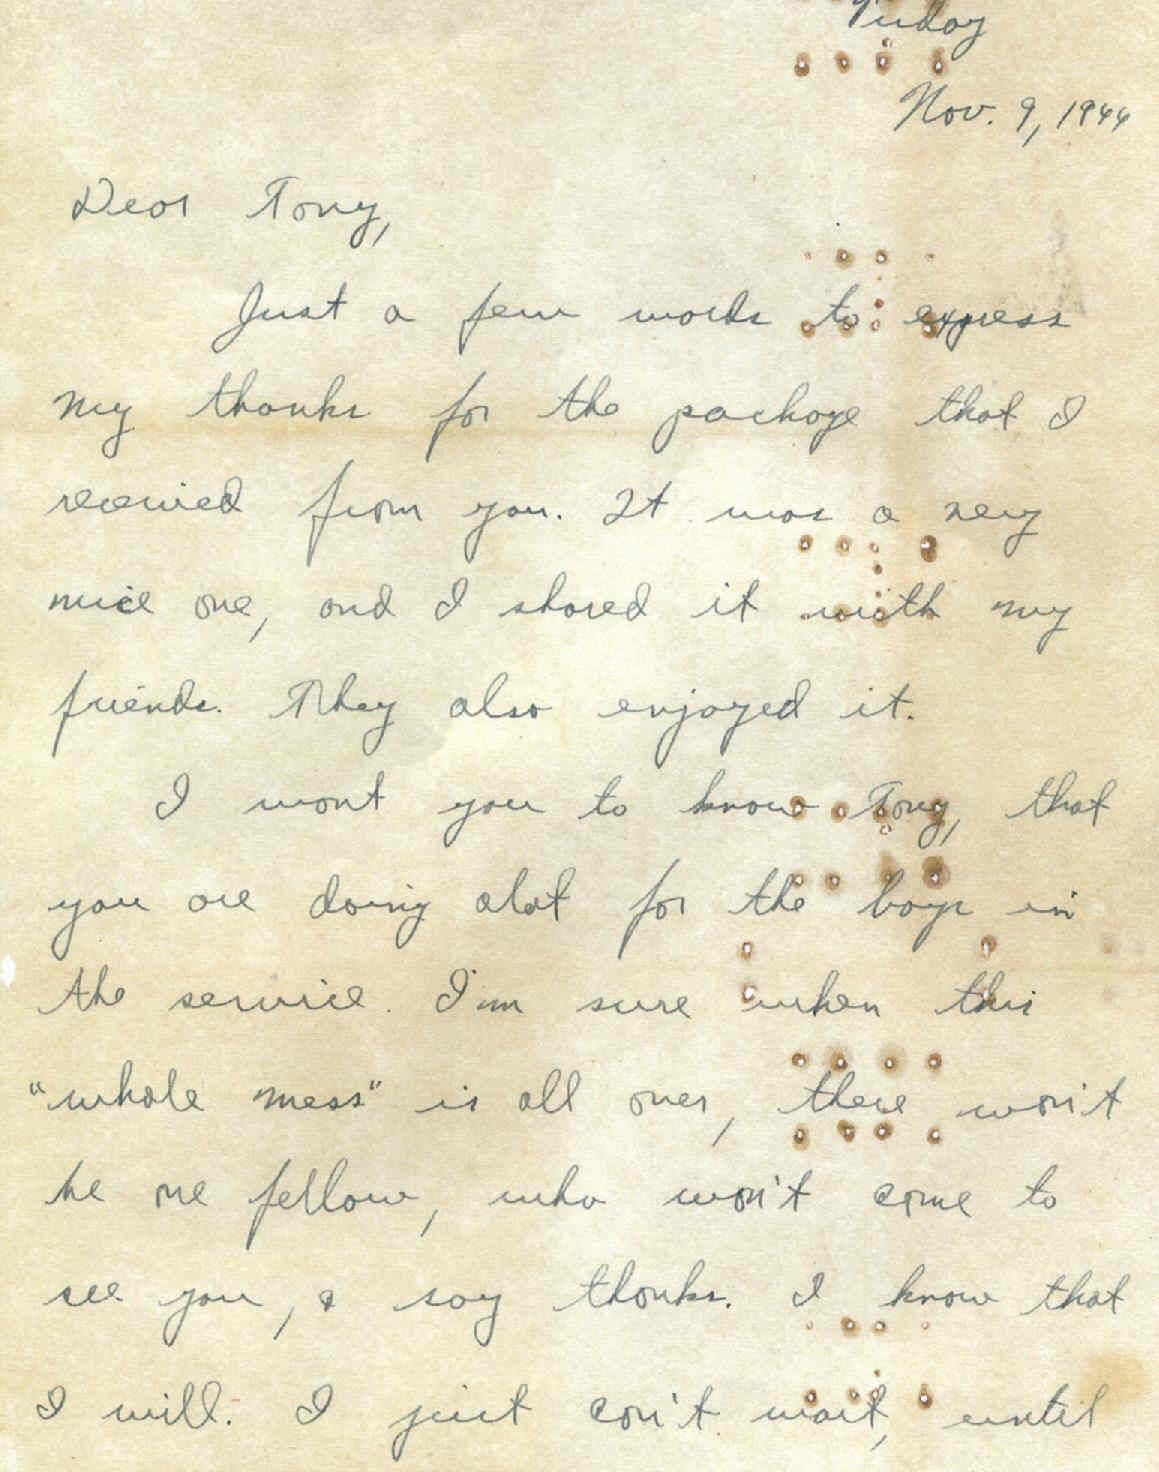 Friday
Nov. 9, 1944
Dear Tony,
Just a few words to express
my thanks for the package that I
received from you. It was a very
nice one, and I shared it with my
friends. They also enjoyed it.
I want you to know Tony, that
you are doing alot for the boys in
the service. I'm sure when this
"whole mess" is all over, there won't
be one fellow, who won't come to
see you, & say thanks. I know that
I will. I just can't wait, until